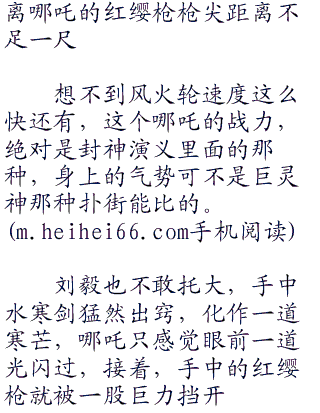 离哪吒的红缨枪枪尖距离不
足一尺
想不到风火轮速度这么
快还有，这个哪吒的战力，
绝对是封神演义里面的那
种，身上的气势可不是巨灵
神那种扑街能比的。
(m.heihei66.com手机阅读)
刘毅也不敢托大，手中
水寒剑猛然出窍，化作一道
寒芒，哪吒只感觉眼前一道
光闪过，接着，手中的红缨
枪就被一股巨力挡开